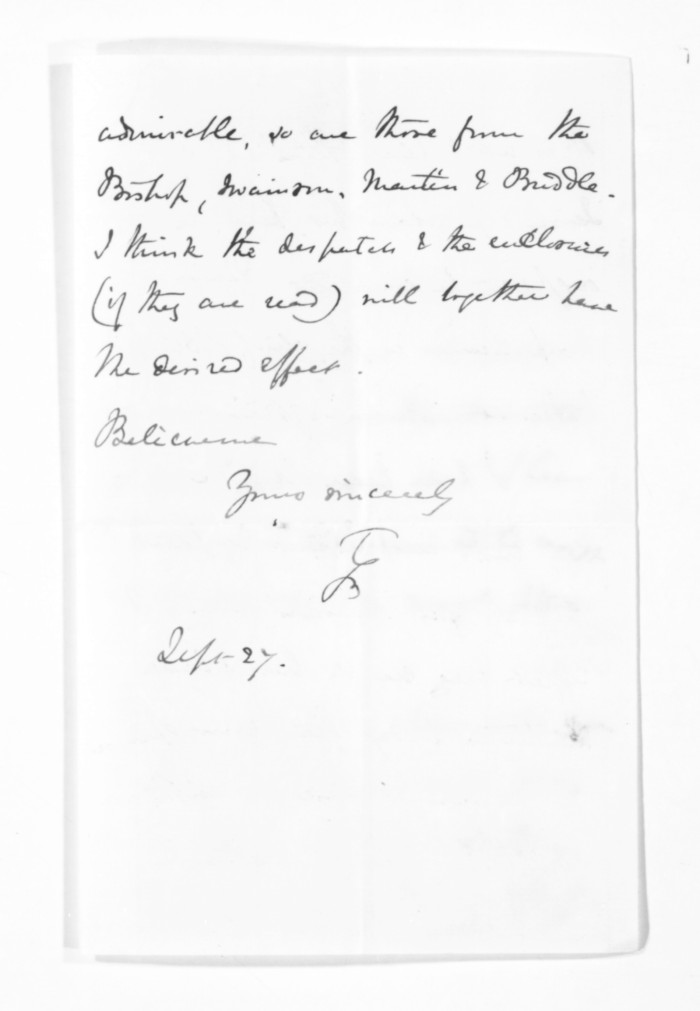 admirable, so are those from the
Bishop, Swainson, Martin & Buddle.
I think the despatch & the enclosures
(if they are read) will together have
the desired effect.
Believe me
Yours sincerely
Sept 27.